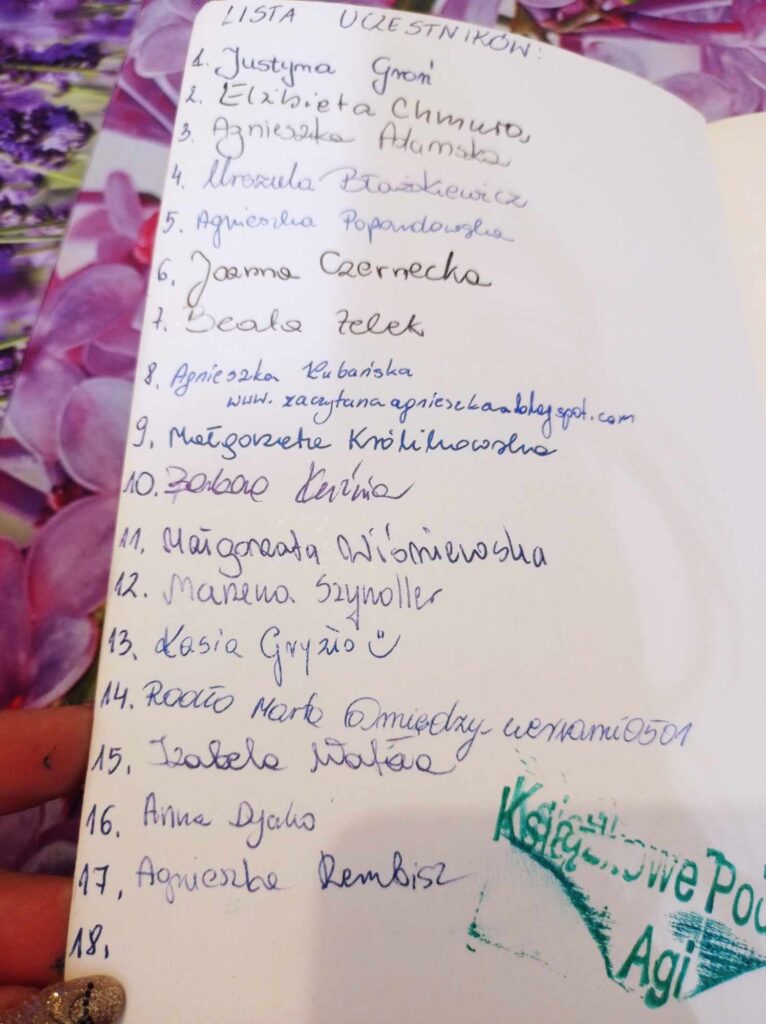 LISTA UCZESTNIKÓW:
1. Justyna Groń
2. Elżbieta Chmura
3. Agnieszka Adamska
4. Urszula Błażkiewicz
5. Agnieszka Popandowska
6. Joanna Czernecka
7. Beata Żelek
8. Agnieszka Kubańska
www.zaczytanaagnieszkaa.blogspot.com
9. Małgorzata Królikowska
10.
11. Małgorzata Wiśniewska
12. Marzena Szynoller
13. Kasia Gryzio
14. Rodło Marta @między_wersami0501
15. Izabela
16. Anna Dyako
17. Agnieszka Rembisz
18.
Książkowe
Agi